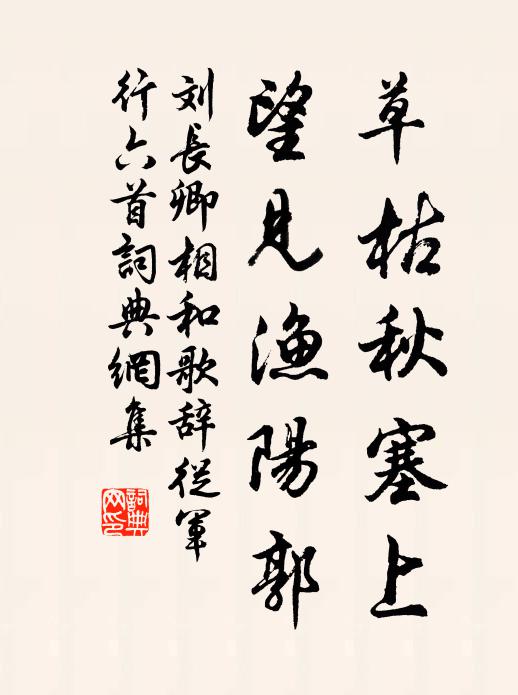 草枯秋塞上
望見漁陽郭
刘長卿相和歌辞従軍
行六首詞典網集
詞典
网印